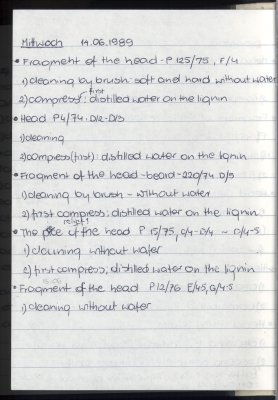 Mittwoch 14.06.1989
• Fragment of the head - P 125/75, F/4
1) cleaning by brush soft and hard without water
first
2) compress: distilled water on the lignin
• Head P4/74 D/2-D/3
1) cleaning
2) compress (first): distilled water on the lignin
• Fragment of the head-beard-220/74 D/5
1) cleaning by brush - without water
2) first compress: distilled water on the lignin
• The of the head P 15/75, c/4-D/4 ~ D/4-5
1) cleaning without water
2) first compress, distilled water on the lignin
• Fragment of the head P12/76 E/4-5, G/4-5
1) cleaning without water